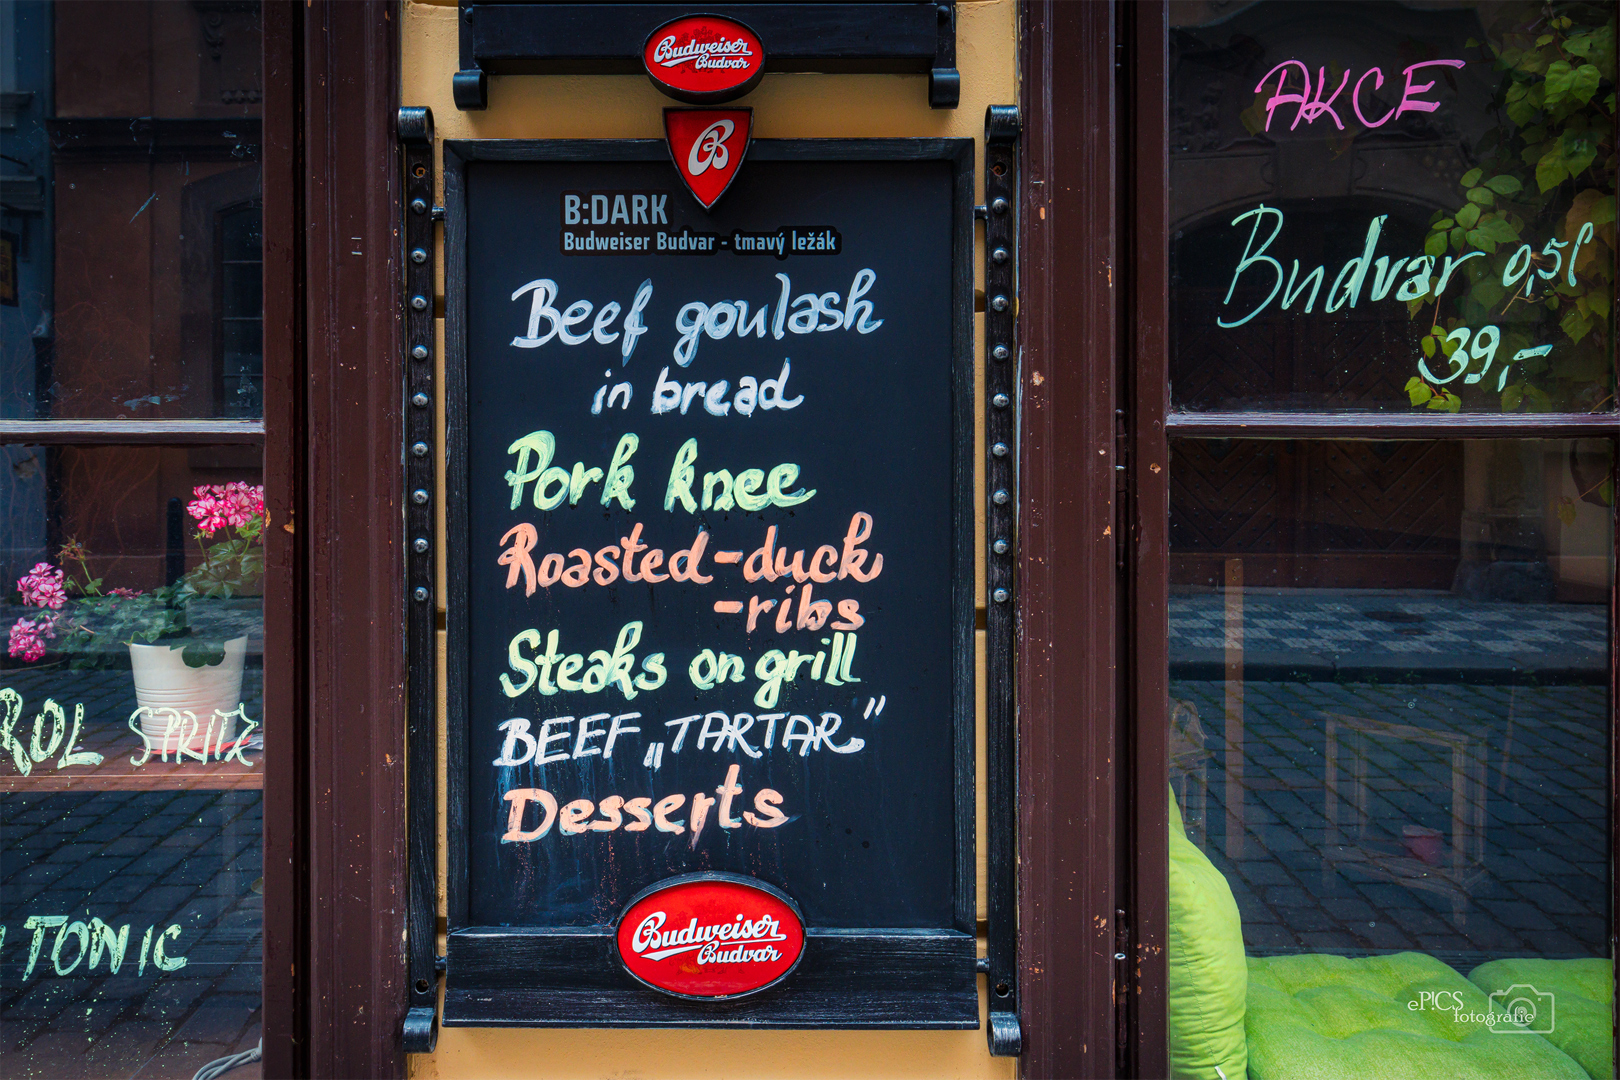 Budweiser
Budvar
B
B:DARK
Budweiser Budvar - tmavý ležák
Beef goulash
in bread
Pork knee
Roasted-duck
-ribs
Steaks on grill
BEEF „TARTAR"
Desserts
Budweiser
Budvar
ROL SPRITZ
TONIC
AKCE
Budvar 0,5l
39,-
eP!CS
fotografie